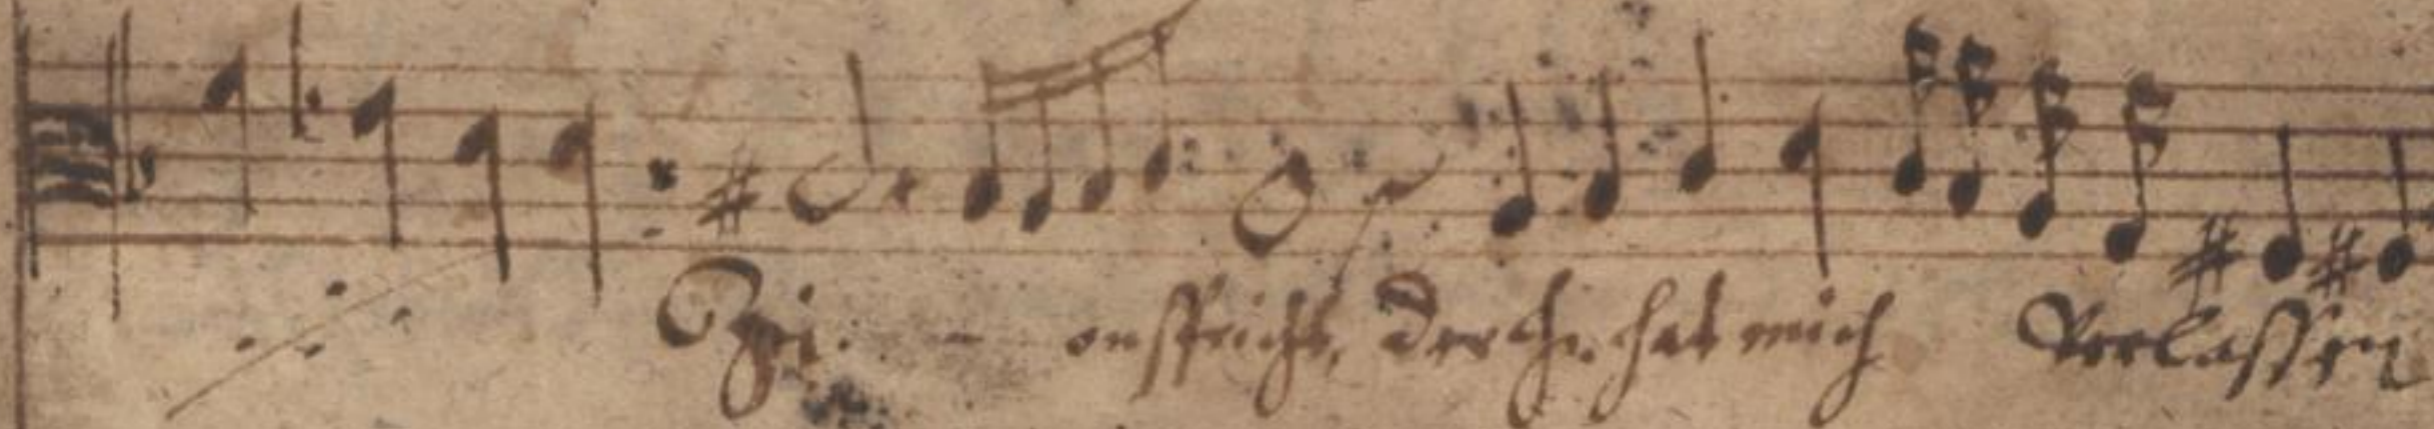 Zi - on spricht, der H. hat mich Verlassen